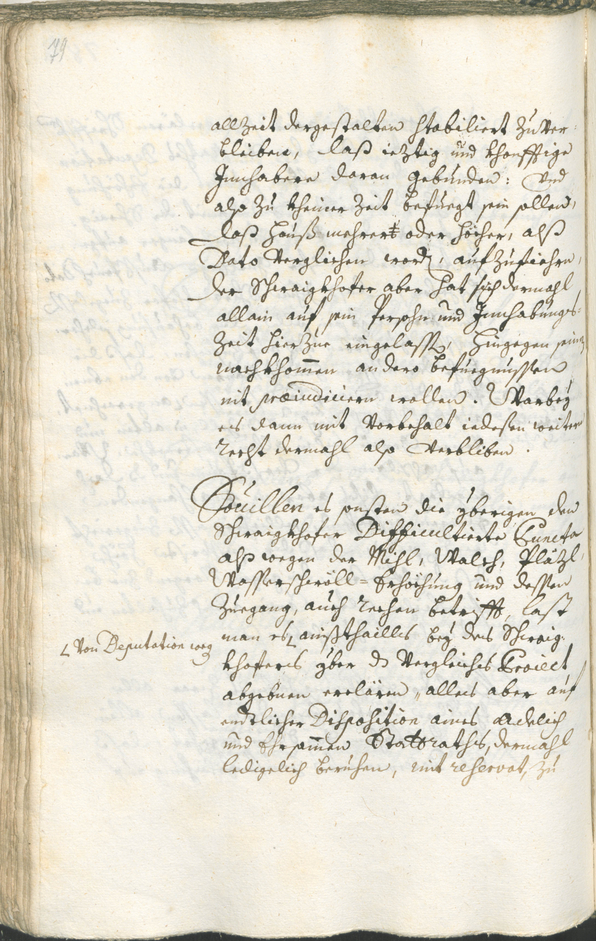 74
allzeit dergestalten stabiliert zu ver-
bleiben, daß ieztig und khonfftige
Innhabere daran gebunden: und
also zu kheiner Zeit befuegt sein sollen,
daß Hauß mehrers oder höher, alß
Dato verglichen word, aufzufiehrn,
der Schwaigkhofer aber hat sich dermahl
allain auf sein Persohn und Innhabungs-
zeit hierzue eingelassn, hingegen seinen
nachkhommen andere befuegnussen
nit præiudiciern wollen. Warbey
es dann mit Vorbehalt iedessen weiter
recht dermahl also verbliben.
Souillen es onsten die yberigen dem
Schwaigkhofer Difficultierte Puncta
alß wegen der Mihl, Walch, Pläzl
Wasserschwöll-Erhöchung und dessen
Zuegang, auch rechen betrifft, last
man es außthaills bey des Schwaig-
Von Deputation weg
khofers yber dz Vergleichs Proiect
abgebnen erclären, alles aber auf
endtlicher Disposition aines adelich
und Ehrsammen Stattraths, dermahl
lediglich beruhen, mit reservat, zu